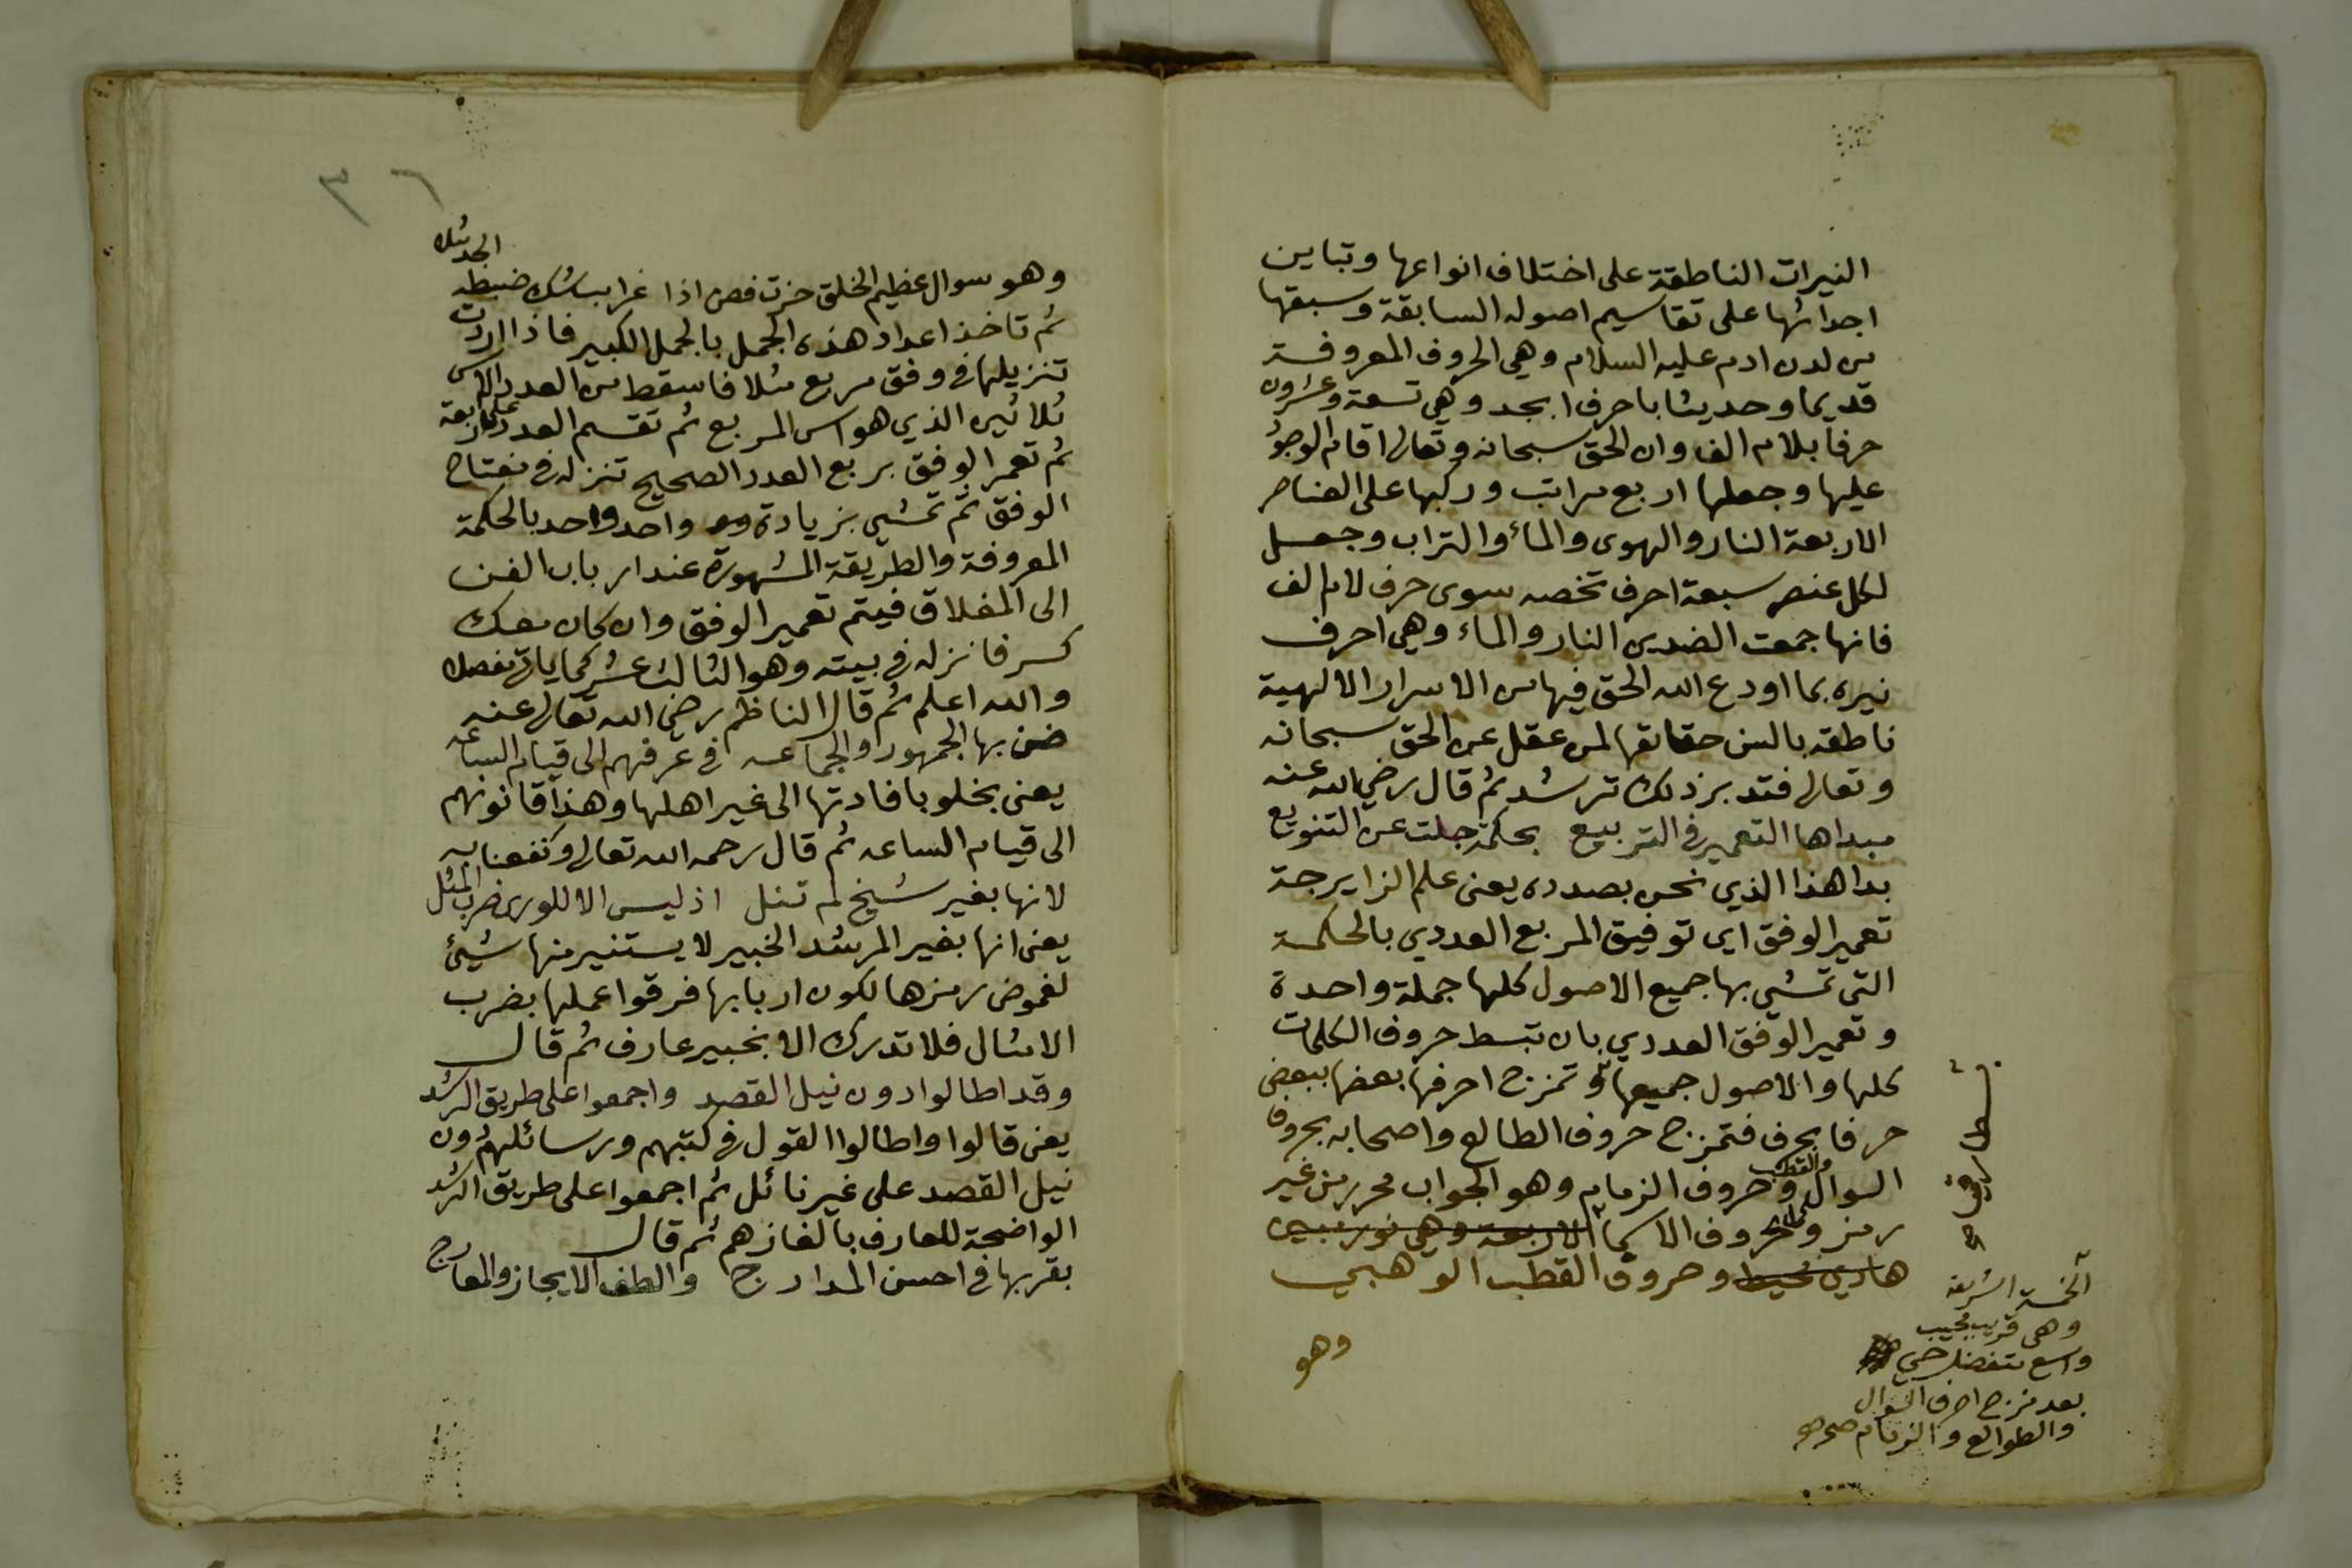 النيرات الناطقة على اختلاف انواعها وتباين
اجدائها على تقاسيم اصوله السابقة وسبقها
من لدن ادم عليه السلام وهي الحروف المعروفة
قديما وحديثا باحرف ابجد وهي تسعة وعشرون
حرفا بلام الف وان الحق سبحانه وتعالى اقام الوجود
عليها وجعلها اربع مراتب وركبها على العناصر
الاربعة النار والهوى والماء والتراب وجعل
لكل عنصر سبعة احرف تخصه سوى حرف لام الف
فانها جمعت الضدين النار والماء وهي احرف
نيره بما اودع الله الحق فيها من الاسرار الالهية
ناطقه بالسن حقائقها لمن عقل عن الحق سبحانه
وتعالى فتدبر ذلك ترشد ثم قال رضي الله عنه
مبداها التعمير في التربيع بحكمة جلت عن التنويع
بدا هذا الذي نحن بصدده يعنى علم الزايرجة
تعمير الوفق اي توفيق المربع العددي بالحكمة
التي تمشي بها جميع الاصول كلها جملة واحدة
وتعمير الوفق العددي بان تبسط حروف الكلمات
كلها والاصول جميعها وتمزج احرفها بعضها ببعض
حرفا بحرف فتمزج حروف الطالع واصحابه بحروف
السوال والقطب وحروف الزمام وهو الجواب محرر من غير
رمز وحروف الاسما الاربعة وهي نور
هادي محيط وحروف القطب الوهبي
وهو
الخمسة الشريفه
وهي قريب مجيب
واسع متفضل حي
بعد مزج احرف السوال
والطوالع والزمام صح
٣٦
وهو سوال عظيم الخلق حزت فصن اذا غرايب شك ضبطه الجد مثلا
ثم تاخذ اعداد هذه الجمل بالجمل الكبير فاذا اردت
تنزيلها في وفق مربع مثلا فاسقط من العدد الاس
ثلاثين الذي هو اس المربع ثم تقسم العدد على اربعة
ثم تعمر الوفق بربع العدد الصحيح تنزله في مفتاح
الوفق ثم تمشي بزيادة واحد واحد بالحكمة
المعروفة والطريقة المشهورة عند ارباب الفن
الى المغلاق فيتم تعمير الوفق وان كان معك
كسر فانزله في بيته وهو الثالث عشر كما ياتي مفصلا
والله اعلم ثم قال الناظم رضي الله تعالى عنه
ضن بها الجمهور والجماعه في عرفهم الى قيام الساعه
يعنى بخلو بافادتها الى غير اهلها وهذا قانونهم
الى قيام الساعه ثم قال رحمه الله تعالى ونفعنا به
لانها بغير شيخ لم تنل اذ ليس الا للورى ضرب المثل
يعنى انها بغير المرشد الخبير لا يستنير منها شيئ
لغموض رمزها لكون اربابها فرقوا عملها بضرب
الامثال فلا تدرك الا بخبير عارف ثم قال
وقد اطالوا دون نيل القصد واجمعوا على طريق الرشد
يعنى قالوا واطالوا القول في كتبهم ورسائلهم دون
نيل القصد على غير نائل ثم اجمعوا على طريق الرشد
الواضحة للعارف بالغازهم ثم قال
بقربها في احسن المدارج والطف الايجاز والمعارج